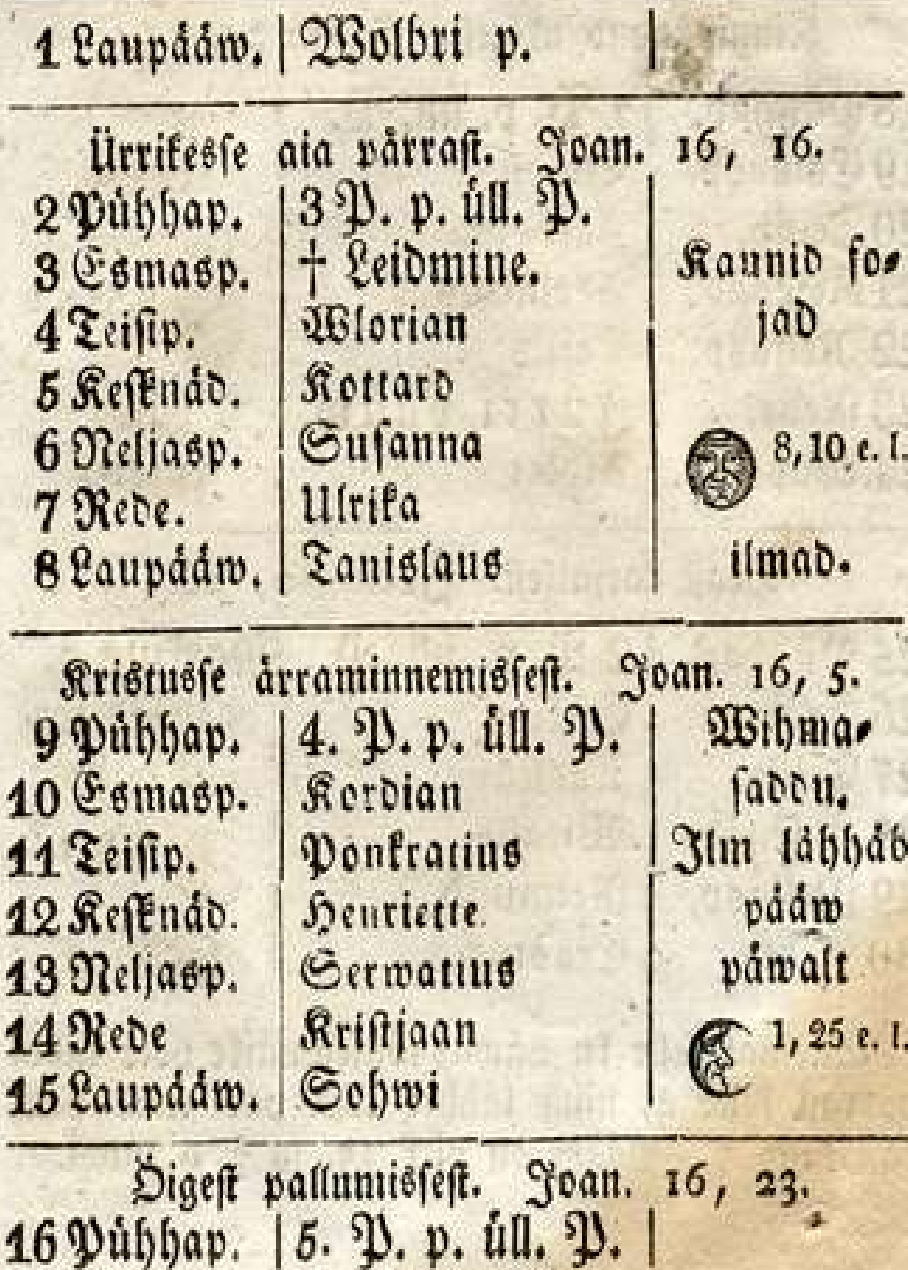 1 Laupääw. | Wolbri p. |
Ürrikesse aia pärrast. Joan. 16, 16.
2 Pühhap. | 3 P. p. üll. P. |
3 Esmasp. | † Leidmine. | Kannid so-
4 Teisip. | Wlorian | jad
5 Kesknäd. | Kottard |
6 Neljasp. | Susanna | 8,10 e. l.
7 Rede. | Ulrika |
8 Laupääw. | Tanislaus | ilmad.
Kristusse ärraminnemissest. Joan. 16, 5.
9 Pühhap. | 4. P. p. üll. P. | Wihma-
10 Esmasp. | Kordian | saddu.
11 Teisip. | Ponkratius | Ilm lähhäb
12 Kesknäd. | Henriette | pääw
13 Neljasp. | Serwatius | päwalt
14 Rede | Kristjaan | 1, 25 e. l.
15 Laupääw. | Sohwi |
Öigest pallumissest. Joan. 16, 23.
16 Pühhap. | 5. P. p. üll. P. |